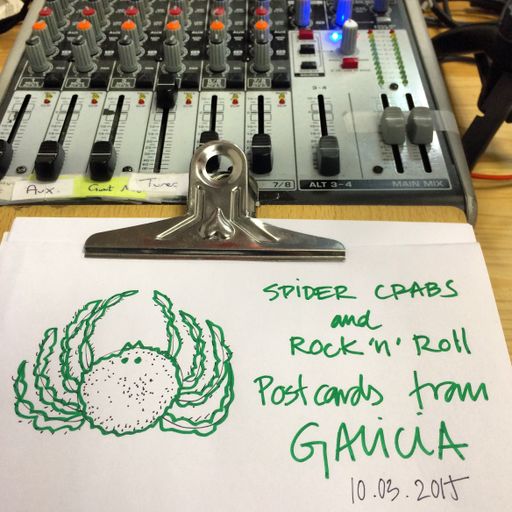 3-4
Aux.
Tunes
7/8
ALT 3-4
MAIN MIX
SPIDER CRABS
and
ROCK 'n' Roll
Postcards from
GALICIA
10.03.2015